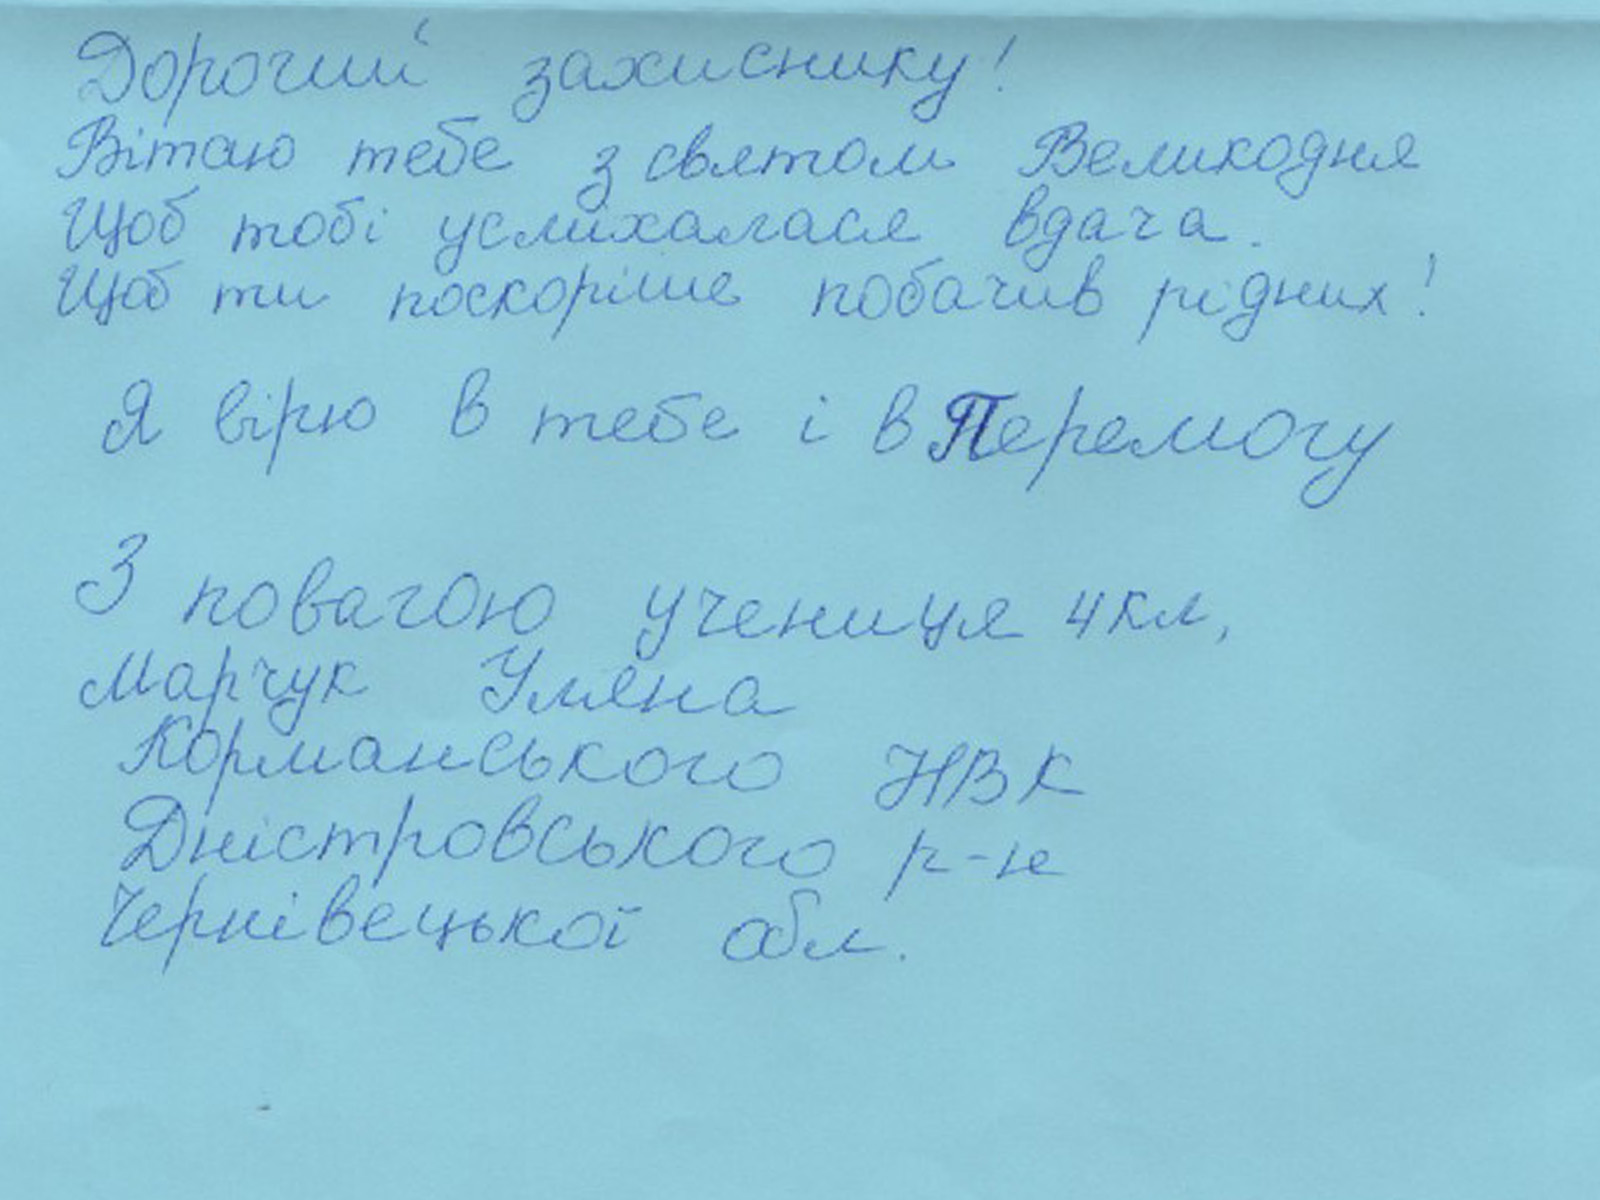 Дорогий захиснику!
Вітаю тебе з святом Великодня
Щоб тобі усміхалася вдача.
Щоб ти поскоріше побачив рідних!
Я вірю в тебе і в Перемогу
З повагою учениця 4 кл,
Марчук Уляна
Корманського НВК
Дністровського р-н
Чернівецької обл.